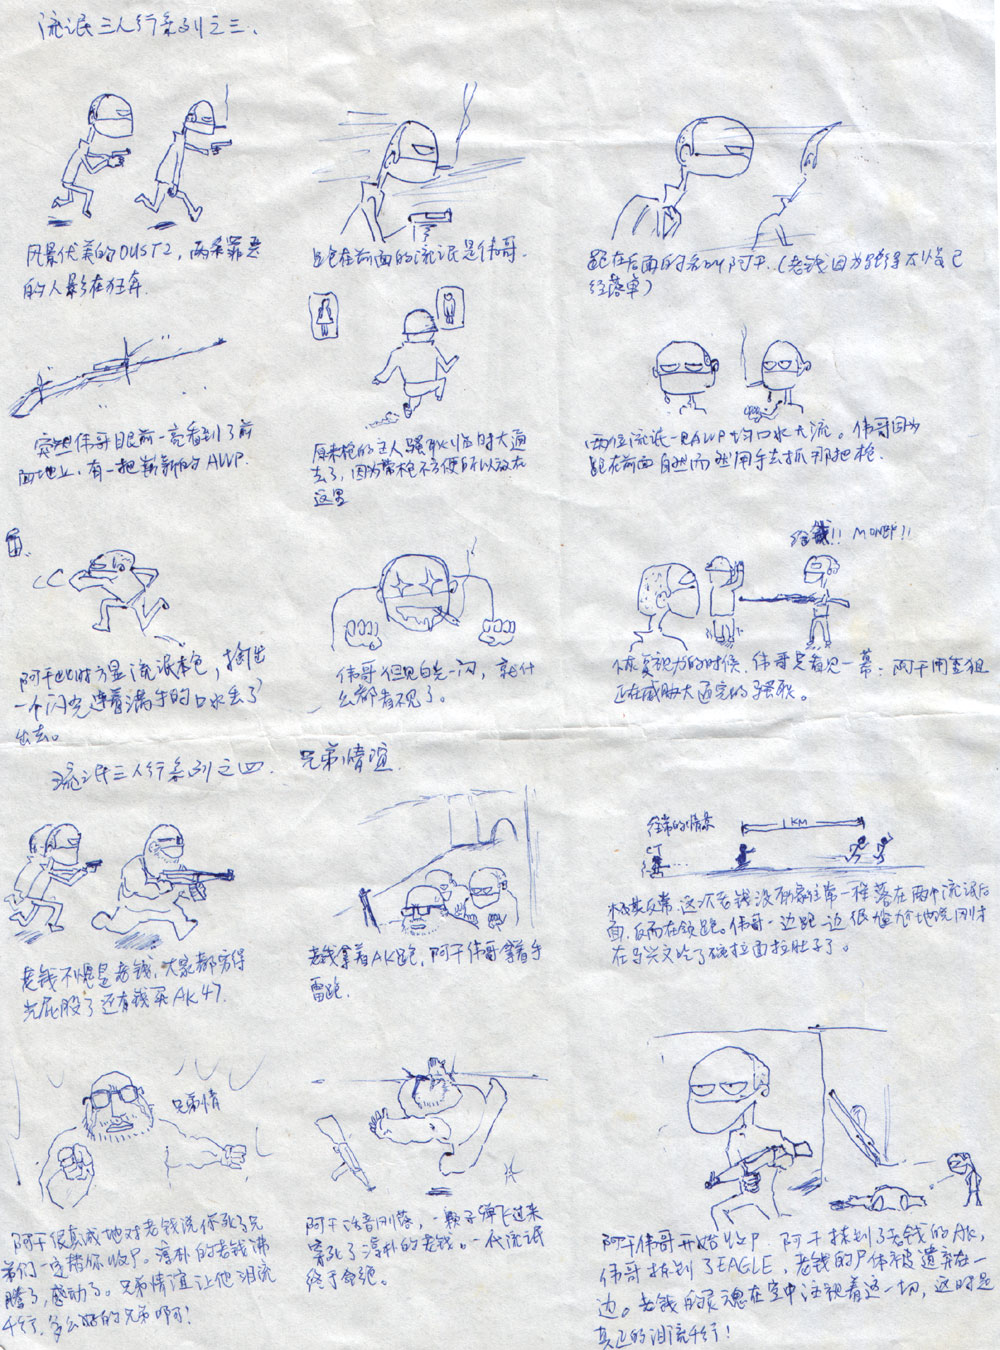 流氓三人行系列之三.
风景优美的DUST2, 两条罪恶
的人影在狂奔.
跑在前面的流氓是伟哥.
跑在后面的名叫阿干.(老钱因为跑得太慢已
经落单)
突然伟哥眼前一亮看到了前
面地上, 有一把崭新的AWP.
原来枪的主人骚耿临时大通
去了, 因为带枪不方便所以放在
这里
两位流氓一见AWP均口水大流。伟哥因为
跑在前面自然而然用手去抓那把枪.
给钱!! MONEY!!
阿干此时方显流氓本色, 掏出
一个闪光连着满手的口水丢了
出去。
伟哥但见白光一闪, 就什
么都看不见了。
恢复视力的时候, 伟哥只看见一幕: 阿干用重狙
正在威胁大通完的骚耿。
流氓三人行系列之四. 兄弟情谊.
往常的情景
1KM
CT
老钱不愧是老钱, 大家都穷得
光屁股了还有钱买AK47.
老钱拿着AK跑, 阿干伟哥拿着手
雷跑.
极其反常, 这次老钱没有象往常一样落在两个流氓后
面, 反而在领跑。伟哥一边跑一边很尴尬地说刚才
在马兴文吃了碗拉面拉肚子了。
兄弟情
阿干很真诚地对老钱说你死了兄
弟们一定替你收尸。淳朴的老钱沸
腾了, 感动了。兄弟情谊让他泪流
千行, 多么好的兄弟啊!
阿干话音刚落, 一颗子弹飞过来
穿死了淳朴的老钱。一代流氓
终于命绝.
阿干伟哥开始收尸. 阿干抹到了老钱的AK,
伟哥抹到了EAGLE, 老钱的尸体被遗弃在一
边。老钱的灵魂在空中注视着这一切, 这时是
真正的泪流千行!